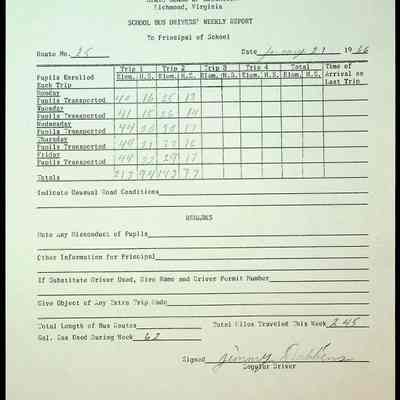 Richmond, Virginia
SCHOOL BUS DRIVERS' WEEKLY REPORT
To Principal of School
Route No. 25 Date January 21 1966
Trip 1 Trip 2 Trip 3 Trip 4 Total Time of
Pupils Enrolled Elem. H.S. Elem. H.S. Elem. H.S. Elem. H.S. Elem. H.S. Arrival on
Each Trip Last Trip
Monday
Pupils Transported 16
Tuesday
Pupils Transported 41 15 26
Wednesday
Pupils Transported 44
Thursday
Pupils Transported 44
Friday
Pupils Transported 44 22 29 17
Totals
Indicate Unusual Road Conditions
REMARKS
Note Any Misconduct of Pupils
Other Information for Principal
If Substitute Driver Used, Give Name and Driver Permit Number
Give Object of Any Extra Trip Made
Total Length of Bus Routes Total Miles Traveled This Week 245
Gal. Gas Used During Week 62
Signed Jimmy Dobbins
Regular Driver